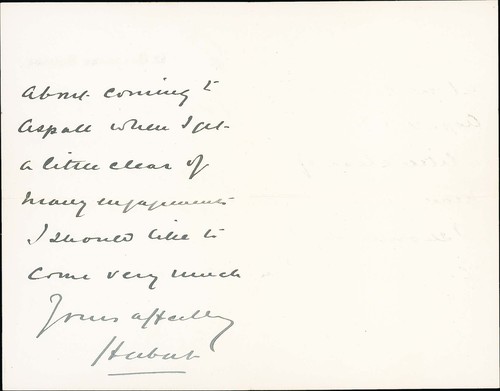 About coming to
Aspall when I get
a little clear of
many engagements
I should like to
come very much
Yours affectly
Hubert